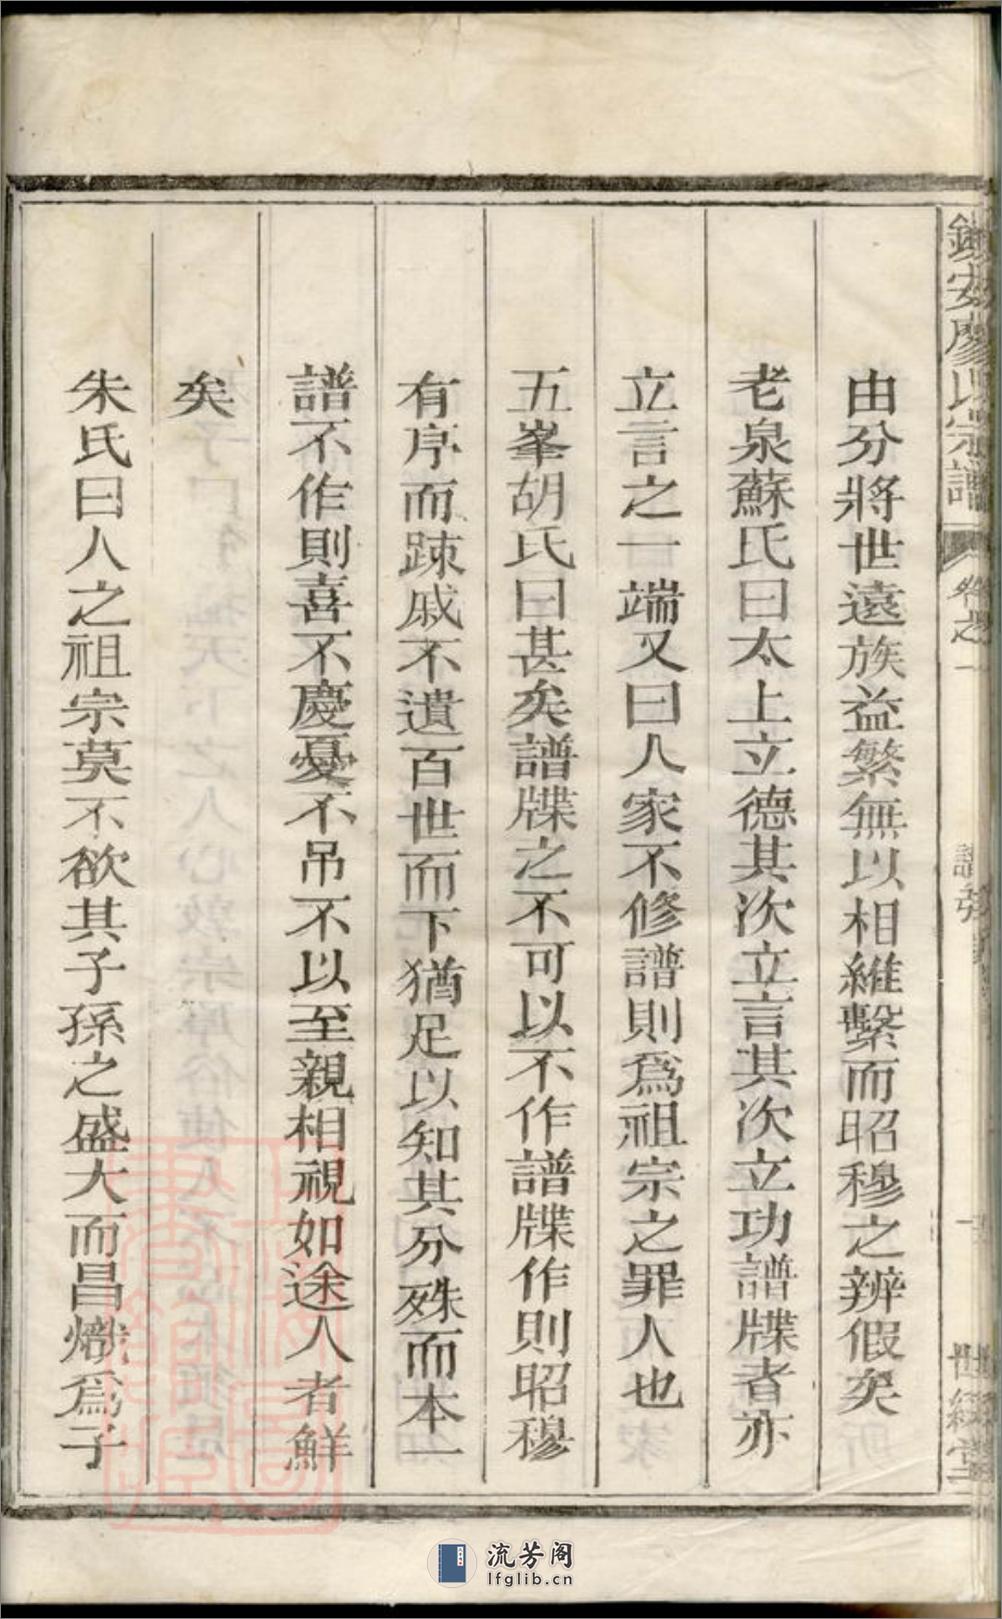 由分將世遠族益繁無以相維繫而昭穆之辨假矣
老泉蘇氏曰太上立德其次立言其次立功譜牒者亦
立言之一端又曰人家不修譜則爲祖宗之罪人也
五峯胡氏曰甚矣譜牒之不可以不作譜牒作則昭穆
有序而踈戚不遺百世而下猶足以知其分殊而本一
譜不作則喜不慶憂不吊不以至親相視如途人者鮮
矣
朱氏曰人之祖宗莫不欲其子孫之盛大而昌熾爲子
安廖氏宗譜
卷之一
流芳阁
lfglib.cn